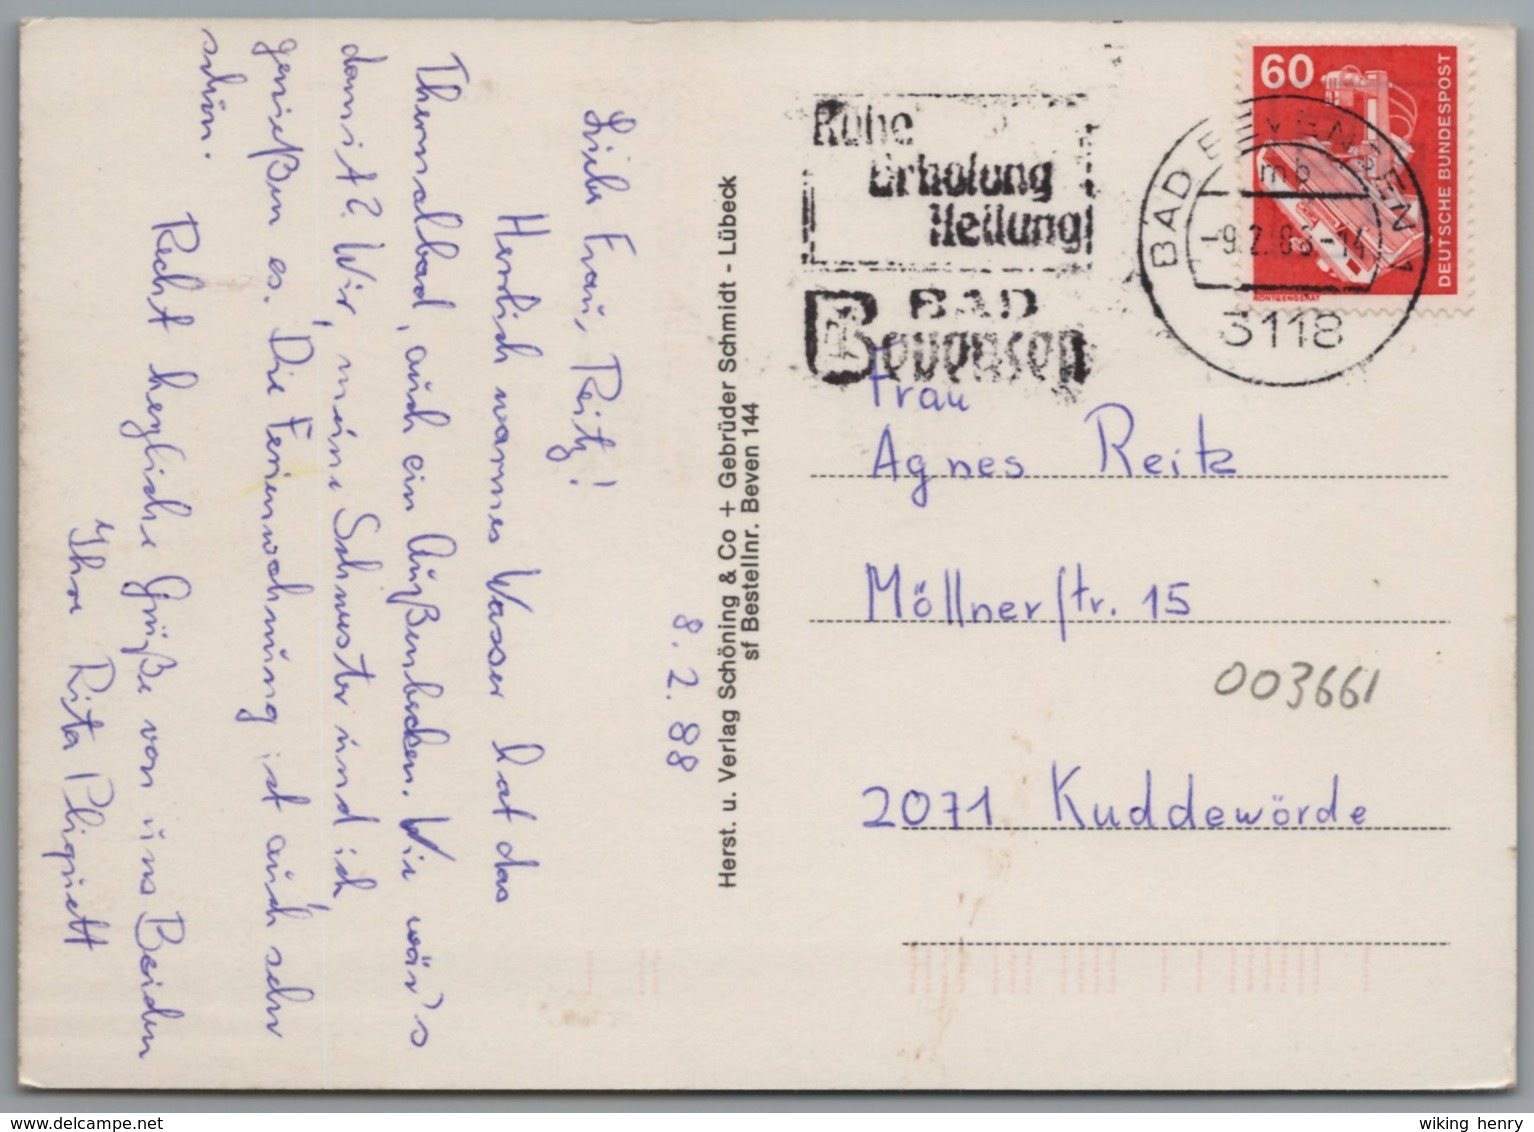 8. 2. 88
Liebe Frau Reitz!
Herrlich warmes Wasser hat das
Thermalbad, auch ein Außenbecken. Wie wär's
damit? Wir, meine Schwester und ich,
genießen es. Die Ferienwohnung ist auch sehr
schön.
Recht herzliche Grüße von uns Beiden
Ihre Rita
Herst. u. Verlag Schöning & Co + Gebrüder Schmidt - Lübeck
sf Bestellnr. Beven 144
Ruhe
Erholung
Heilung
BAD
Bevensen
BAD BEVENSEN 1
mb
-9.2.88-14
3118
60
DEUTSCHE BUNDESPOST
RÖNTGENGERÄT
Frau
Agnes Reitz
Möllnerstr. 15
003661
2071 Kuddewörde
www.delcampe.net
wiking henry